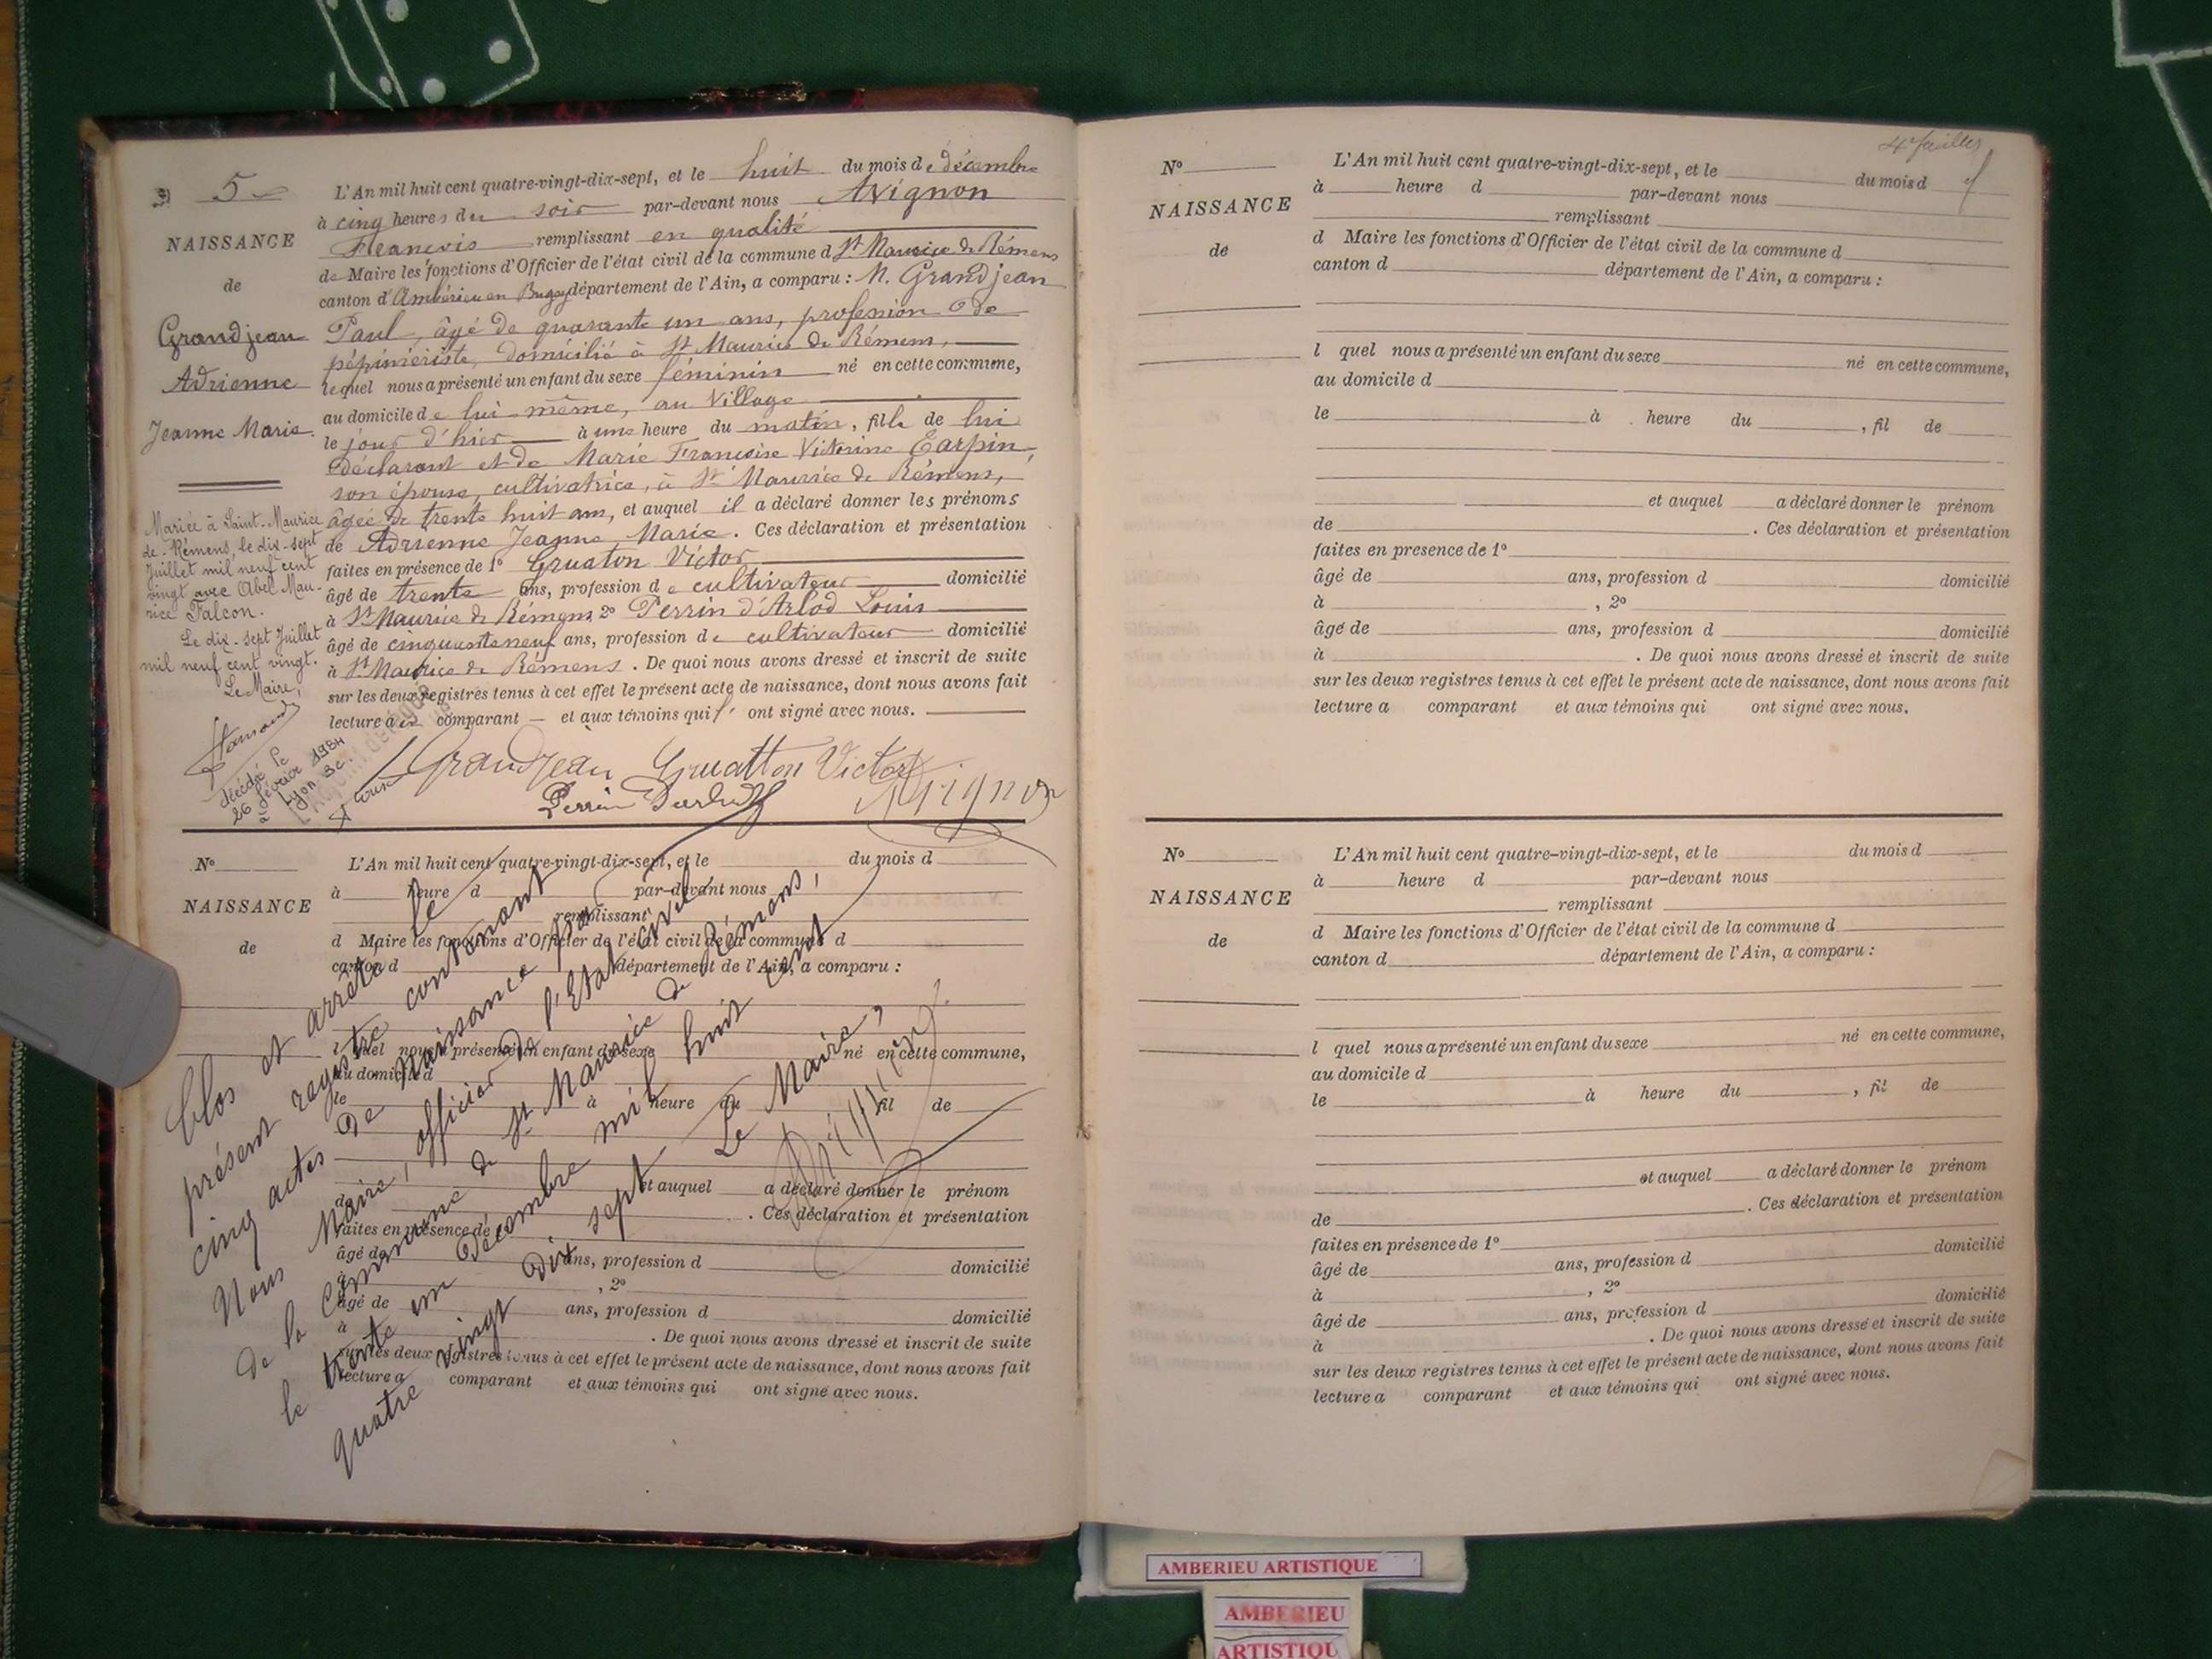 Nº 5
NAISSANCE
de
Grandjean
Adrienne
Jeanne Marie
Mariée à Saint-Maurice
de-Rémens, le dix-sept
Juillet mil neuf cent
vingt avec Abel Mau-
rice Falcon.
Le dix-sept Juillet
mil neuf cent vingt.
Le Maire,
décédé le
26 février 1984
à Lyon 3e.
L'An mil huit cent quatre-vingt-dix-sept, et le huit du mois de décembre
à cinq heures du soir par-devant nous Avignon
François remplissant en qualité
de Maire les fonctions d'Officier de l'état civil de la commune d St Maurice de Rémens
canton d'Ambérieu en Bugey département de l'Ain, a comparu : M. Grandjean
Paul, âgé de quarante un ans, profession de
pépiniériste, domicilié à St Maurice de Rémens,
lequel nous a présenté un enfant du sexe féminin né en cette commune,
au domicile de lui-même, au Village
le jour d'hier à une heure du matin, fille de lui
déclarant et de Marie Françoise Victorine Carpin,
son épouse, cultivatrice, à St Maurice de Rémens,
âgée de trente huit ans, et auquel il a déclaré donner les prénoms
de Adrienne Jeanne Marie. Ces déclaration et présentation
faites en présence de 1º Gruaton Victor
âgé de trente ans, profession de cultivateur domicilié
à St Maurice de Rémens 2º Perrin d'Arlod Louis
âgé de cinquante neuf ans, profession de cultivateur domicilié
à St Maurice de Rémens. De quoi nous avons dressé et inscrit de suite
sur les deux registres tenus à cet effet le présent acte de naissance, dont nous avons fait
lecture au comparant et aux témoins qui ont signé avec nous.
Grandjean Gruatton Victor
Perrin Avignon
Nº
NAISSANCE
de
L'An mil huit cent quatre-vingt-dix-sept, et le du mois d
à heure d par-devant nous
remplissant
d Maire les fonctions d'Officier de l'état civil de la commune d
canton d département de l'Ain, a comparu :
l quel nous a présenté un enfant du sexe né en cette commune,
au domicile d
le à heure du fil de
et auquel a déclaré donner le prénom
de . Ces déclaration et présentation
faites en présence de
âgé de ans, profession d domicilié
à , 2º
âgé de ans, profession d domicilié
à . De quoi nous avons dressé et inscrit de suite
sur les deux registres tenus à cet effet le présent acte de naissance, dont nous avons fait
lecture a comparant et aux témoins qui ont signé avec nous.
Clos et arrêté le
présent registre contenant
cinq actes de Naissance par
Nous Maire, officier de l'Etat civil
de la Commune de St Maurice de Rémens,
le trente un décembre mil huit cent
quatre vingt dix sept
Le Maire,
Avignon
4e feuillet
Nº
NAISSANCE
de
L'An mil huit cent quatre-vingt-dix-sept, et le du mois d
à heure d par-devant nous
remplissant
d Maire les fonctions d'Officier de l'état civil de la commune d
canton d département de l'Ain, a comparu :
l quel nous a présenté un enfant du sexe né en cette commune,
au domicile d
le à heure du , fil de
et auquel a déclaré donner le prénom
de . Ces déclaration et présentation
faites en presence de 1º
âgé de ans, profession d domicilié
à , 2º
âgé de ans, profession d domicilié
à . De quoi nous avons dressé et inscrit de suite
sur les deux registres tenus à cet effet le présent acte de naissance, dont nous avons fait
lecture a comparant et aux témoins qui ont signé avec nous.
Nº
NAISSANCE
de
L'An mil huit cent quatre-vingt-dix-sept, et le du mois d
à heure d par-devant nous
remplissant
d Maire les fonctions d'Officier de l'état civil de la commune d
canton d département de l'Ain, a comparu :
l quel nous a présenté un enfant du sexe né en cette commune,
au domicile d
le à heure du , fil de
et auquel a déclaré donner le prénom
de . Ces déclaration et présentation
faites en présence de 1º
âgé de ans, profession d domicilié
à , 2º
âgé de ans, profession d domicilié
à . De quoi nous avons dressé et inscrit de suite
sur les deux registres tenus à cet effet le présent acte de naissance, dont nous avons fait
lecture a comparant et aux témoins qui ont signé avec nous.
AMBERIEU ARTISTIQUE
AMBERIEU
ARTISTIQU